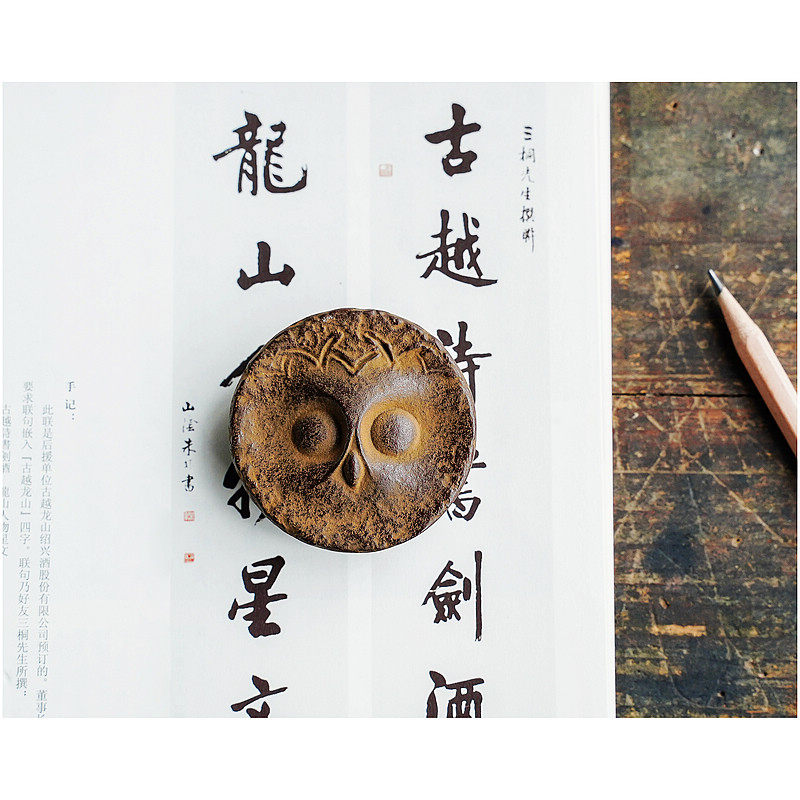 三桐先生撰聯
古越詩書劍酒
龍山人物星文
山陰朱書
手记：
此联是后援单位古越龙山绍兴酒股份有限公司预订的。董事
要求联句嵌入「古越龙山」四字。联句乃好友三桐先生所撰：
古越詩書剑酒 龍山人物星文